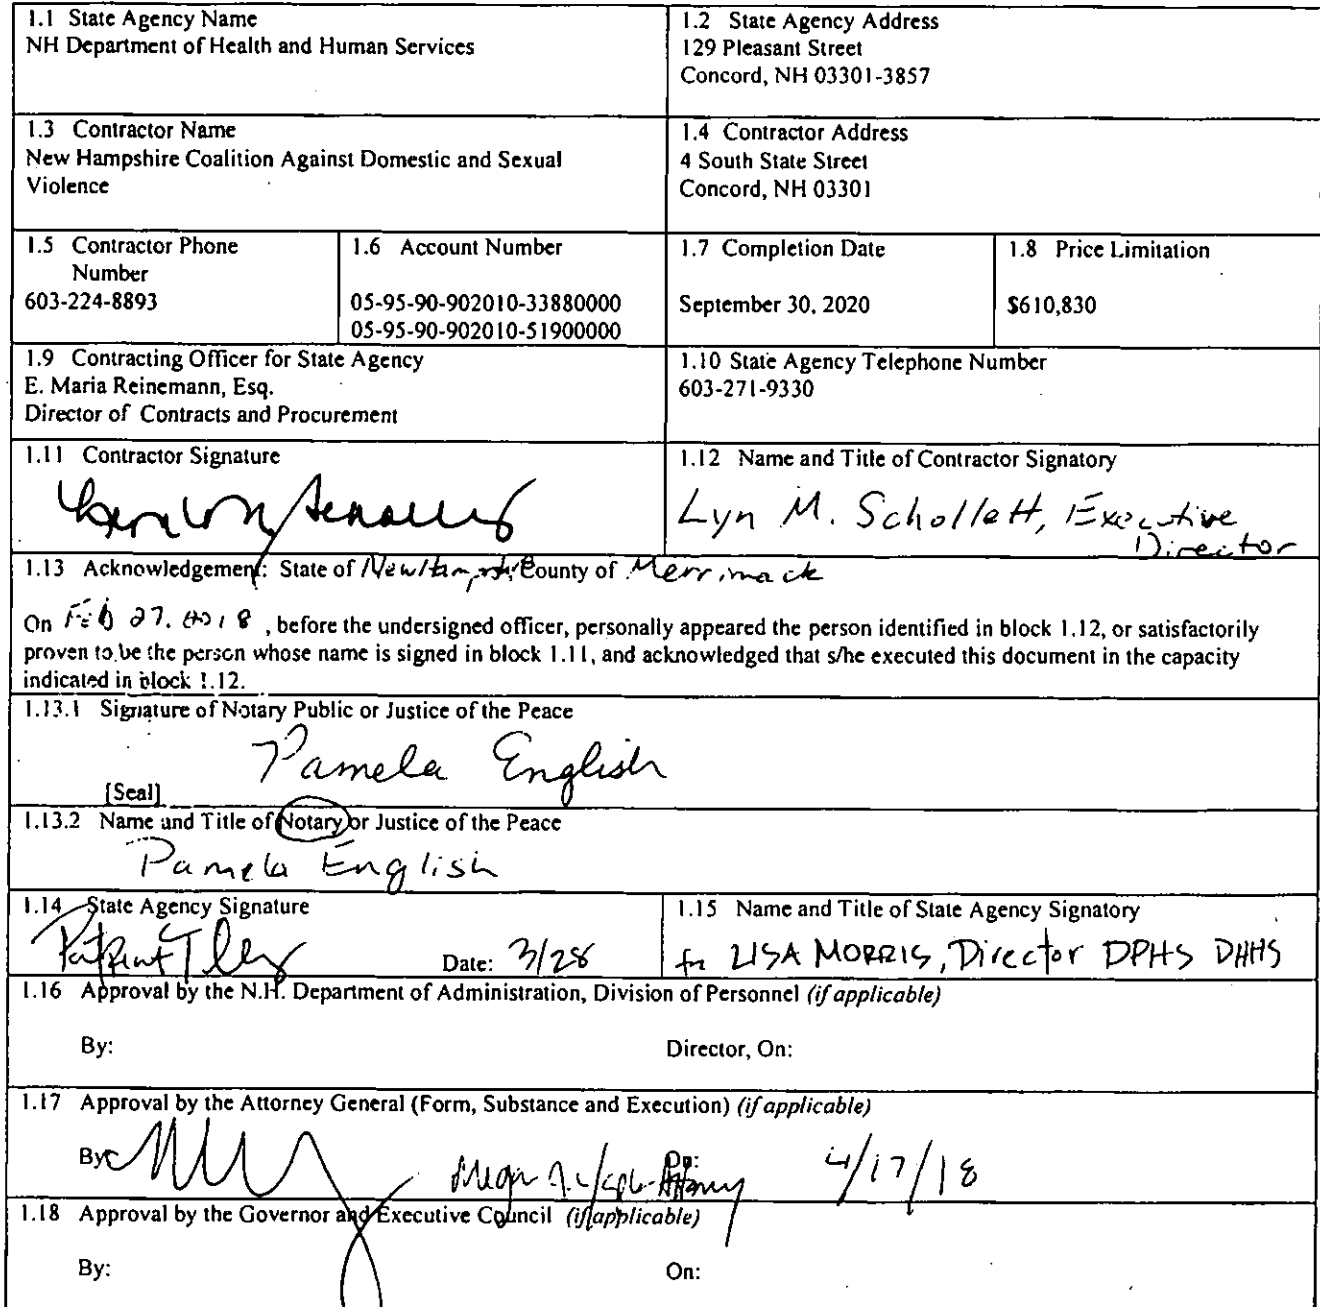 1.1 State Agency Name
NH Department of Health and Human Services
1.2 State Agency Address
129 Pleasant Street
Concord, NH 03301-3857
1.3 Contractor Name
New Hampshire Coalition Against Domestic and Sexual
Violence
1.4 Contractor Address
4 South State Street
Concord, NH 03301
1.5 Contractor Phone
Number
603-224-8893
1.6 Account Number
05-95-90-902010-33880000
05-95-90-902010-51900000
1.7 Completion Date
September 30, 2020
1.8 Price Limitation
$610,830
1.9 Contracting Officer for State Agency
E. Maria Reinemann, Esq.
Director of Contracts and Procurement
1.10 State Agency Telephone Number
603-271-9330
1.11 Contractor Signature
1.12 Name and Title of Contractor Signatory
Lyn M. Schollett, Executive
Director
1.13 Acknowledgement: State of New Hampshire County of Merrimack
On Feb 27, 2018, before the undersigned officer, personally appeared the person identified in block 1.12, or satisfactorily
proven to be the person whose name is signed in block 1.11, and acknowledged that s/he executed this document in the capacity
indicated in block 1.12.
1.13.1 Signature of Notary Public or Justice of the Peace
Pamela English
[Seal]
1.13.2 Name and Title of Notary or Justice of the Peace
Pamela English
1.14 State Agency Signature
Date: 3/28
1.15 Name and Title of State Agency Signatory
for LISA MORRIS, Director DPHS DHHS
1.16 Approval by the N.H. Department of Administration, Division of Personnel (if applicable)
By:
Director, On:
1.17 Approval by the Attorney General (Form, Substance and Execution) (if applicable)
By:
On: 4/17/18
1.18 Approval by the Governor and Executive Council (if applicable)
By:
On: